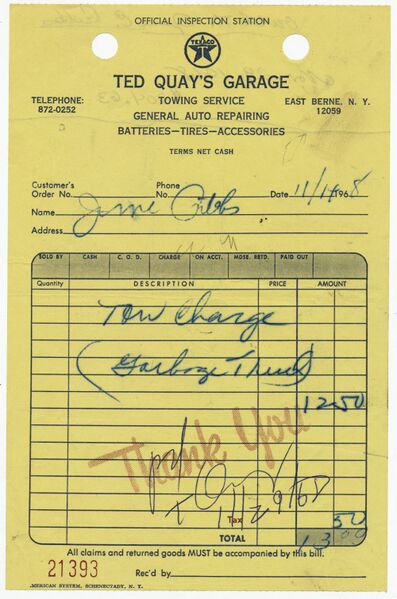 OFFICIAL INSPECTION STATION
TEXACO
TED QUAY'S GARAGE
TELEPHONE:
872-0252
TOWING SERVICE
GENERAL AUTO REPAIRING
BATTERIES—TIRES—ACCESSORIES
EAST BERNE, N. Y.
12059
TERMS NET CASH
Customer's
Order No. Phone No. Date 11/14 1968
Name Gibbs
Address
SOLD BY CASH C. O. D. CHARGE ON ACCT. MDSE. RETD. PAID OUT
Quantity DESCRIPTION PRICE AMOUNT
Tow Charge
(Garbage Truck)
12 50
Thank You
pd
11/29/68
Tax 50
TOTAL 13 00
All claims and returned goods MUST be accompanied by this bill.
21393 Rec'd by
AMERICAN SYSTEM, SCHENECTADY, N. Y.